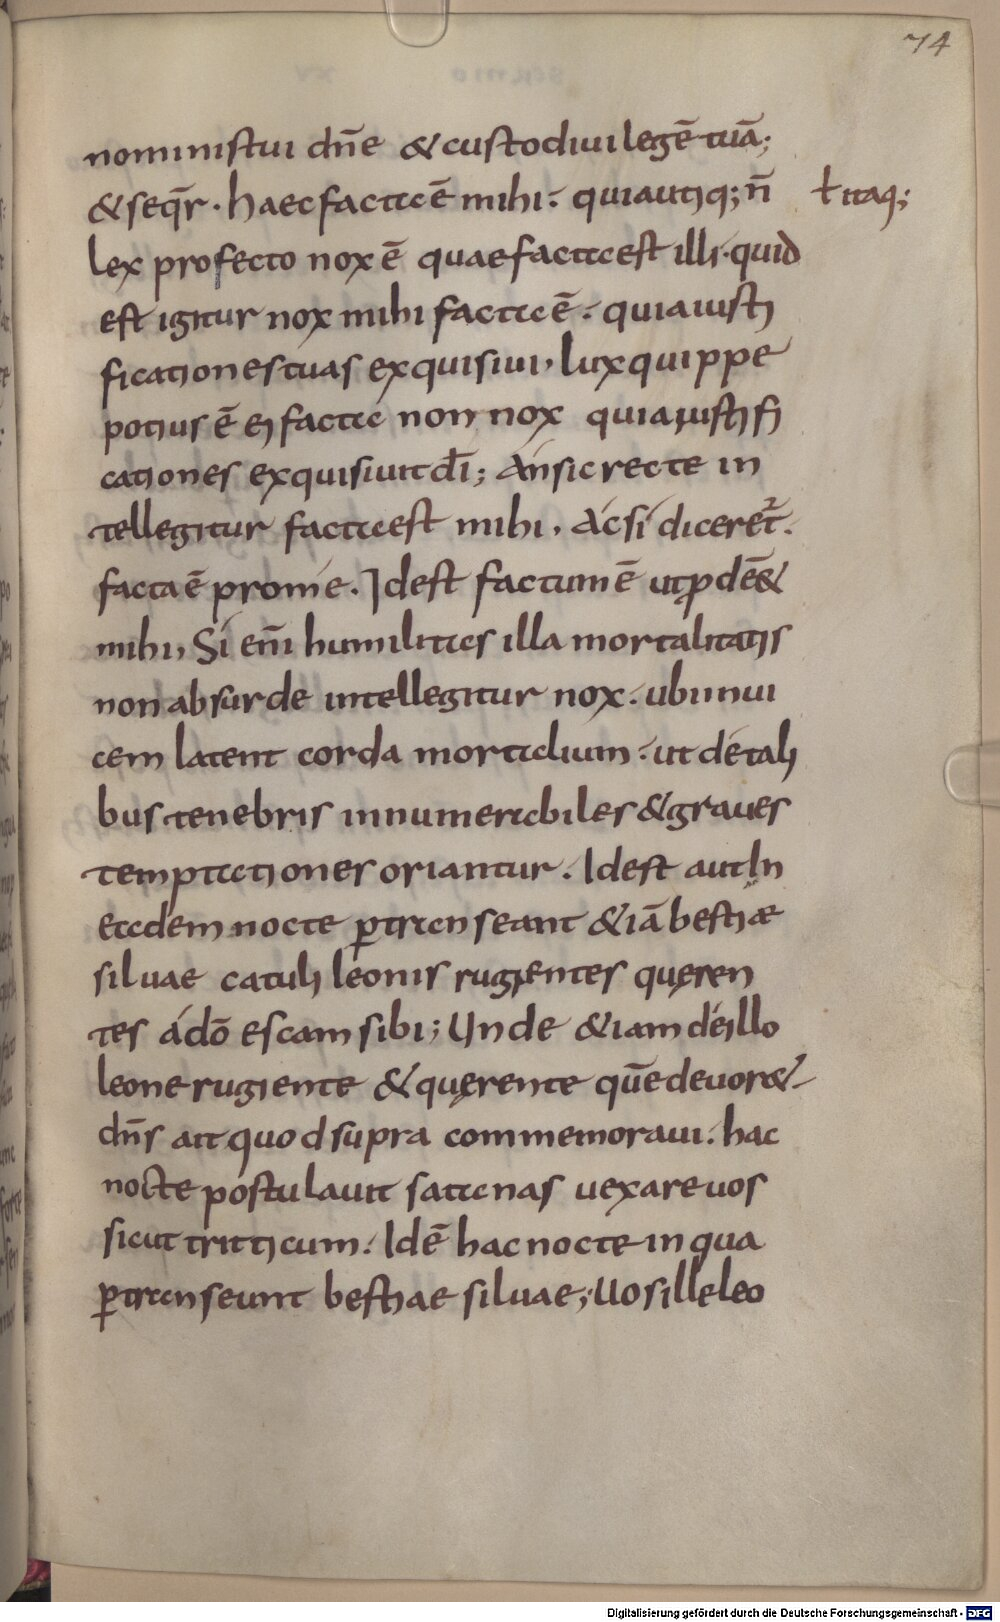 74
nominis tui dn̄e & custodiui legē tuā;
& seqr̄. haec facta ē mihi. quia utiq; n̄
ƚ itaq;
lex profecto nox ē quae facta est illi. quid
est igitur nox mihi facta ē. quia iusti
ficationes tuas exquisiui, lux quippe
potius ē ei facta non nox quia iustifi
cationes exquisiuit dī; An sic recte in
tellegitur facta est mihi, ac si diceret᷑.
facta ē pro me. Idest factum ē ut ꝓdē&
mihi, Si em̄ humilitas illa mortalitatis
non absurde intellegitur nox. ubi inui
cem latent corda mortalium. ut de tali
bus tenebris innumerabiles & graues
temptationes oriantur. Idest aut In
eadem nocte ꝑtranseant & iā bestiae
siluae catuli leonis rugientes quęren
tes a dō escam sibi; Unde & iam de illo
leone rugiente & quęrente quē deuor&
dn̄s ait quod supra commemoraui. hac
nocte postulauit satanas uexare uos
sicut triticum. Id ē hac nocte in qua
ꝑtranseunt bestiae siluae; Uos ille leo
Digitalisierung gefördert durch die Deutsche Forschungsgemeinschaft - DFG